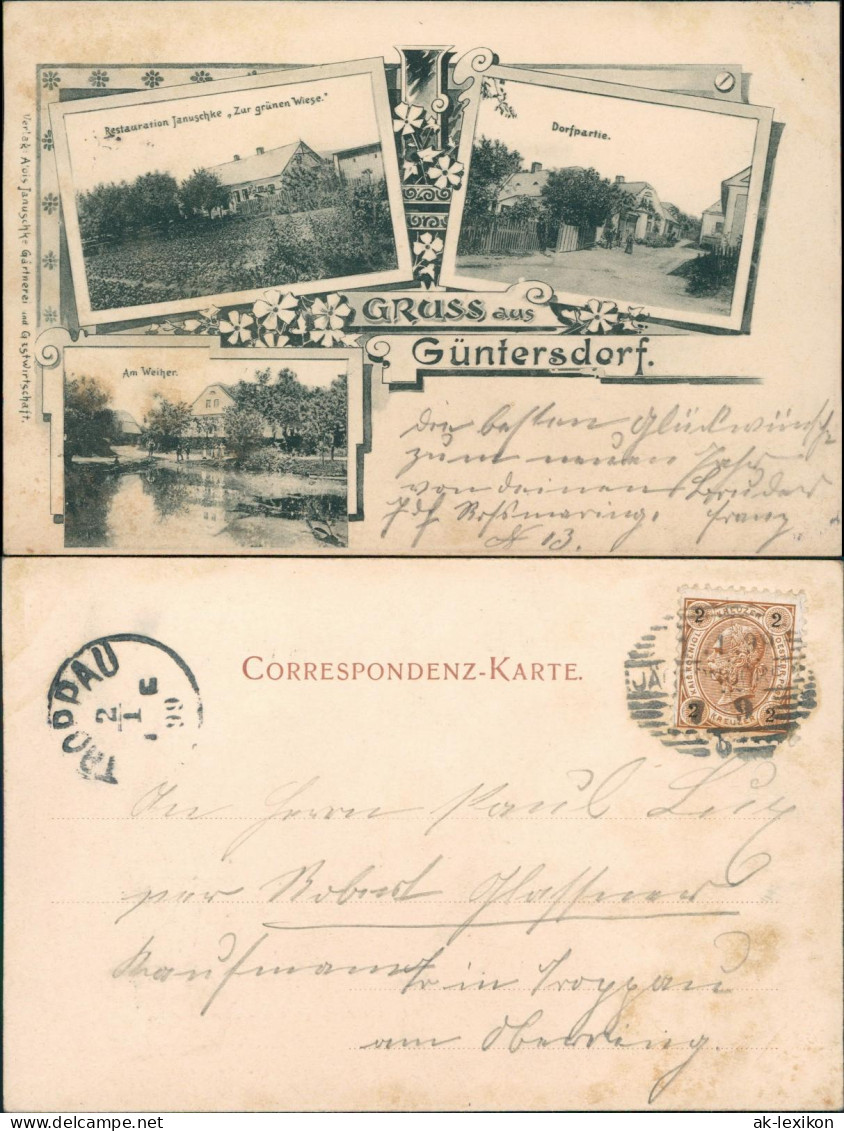 Verlag: Alois Januschke Gärtnerei und Gastwirtschaft.
Restauration Januschke „Zur grünen Wiese.“
Dorfpartie.
GRUSS aus
Güntersdorf.
Am Weiher.
Die besten Glückwünsche
zum neuen Jahr
von deinem Bruder
Franz
N 13.
TROPPAU
2
1
99
CORRESPONDENZ-KARTE.
2 2
2 2
KREUZER
An Herrn Paul
per Robert Glassner
Kaufmann in Troppau
am Oberring.
ak-lexikon